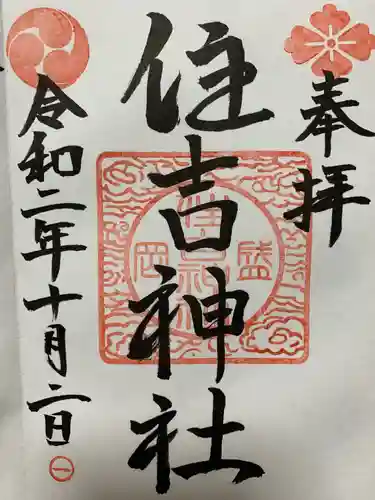 奉拝
住吉神社
盛岡
住吉神社
令和二年十月二日